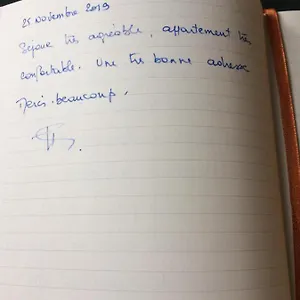 25 Novembre 2019
Séjour très agréable, appartement très
confortable. Une très bonne adresse
Merci beaucoup.